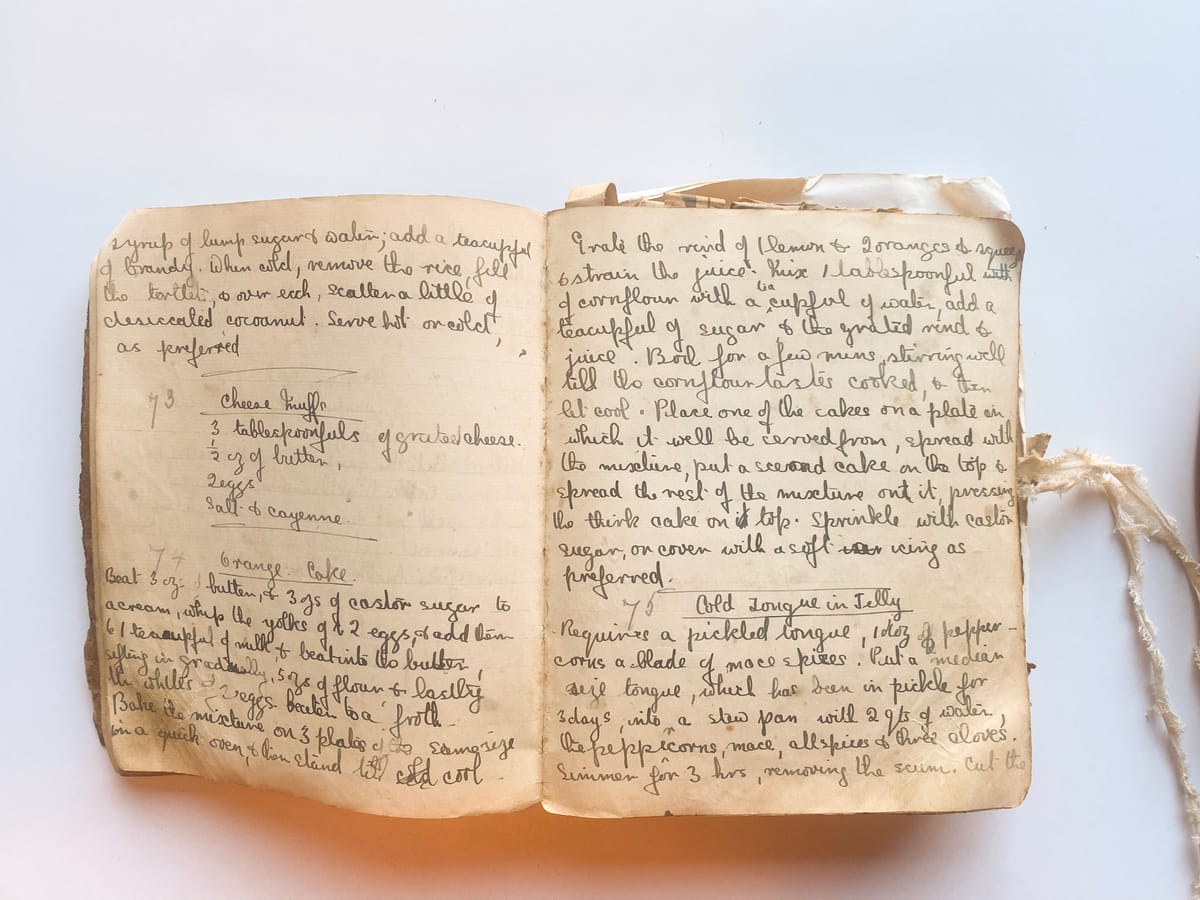 syrup of lump sugar & water; add a teacupful
of brandy. When cold, remove the rice, fill
the tortlets, & over each, scatter a little of
desiccated cocoanut. Serve hot or cold,
as preferred
73
Cheese Puffs
3 tablespoonfuls of grated cheese.
½ oz of butter,
2 eggs
Salt & cayenne.
74
Orange Cake.
Beat 3 oz butter, & 3 ozs of castor sugar to
a cream, whip the yolks of 2 eggs, & add them
to 1 teacupful of milk, & beat into the butter,
sifting in gradually, 5 ozs of flour & lastly
the whites of 2 eggs beaten to a froth
Bake the mixture on 3 plates of same size
in a quick oven, & then stand till cool
Grate the rind of 1 lemon & 2 oranges & squeeze
& strain the juice. Mix 1 tablespoonful
of cornflour with a tea cupful of water, add a
teacupful of sugar & the grated rind &
juice. Boil for a few mins, stirring well
till the cornflour tastes cooked, & then
let cool. Place one of the cakes on a plate in
which it will be served from, spread with
the mixture, put a second cake on the top &
spread the rest of the mixture on it, pressing
the think cake on top. Sprinkle with castor
sugar, or cover with a soft icing as
preferred.
75 Cold Tongue in Jelly
Requires a pickled tongue, 1 doz of pepper-
corns a blade of mace spices. Put a median
size tongue, which has been in pickle for
3 days, into a stew pan with 2 qts of water,
the peppicorns, mace, allspices & three cloves.
Simmer for 3 hrs, removing the scum. Cut the